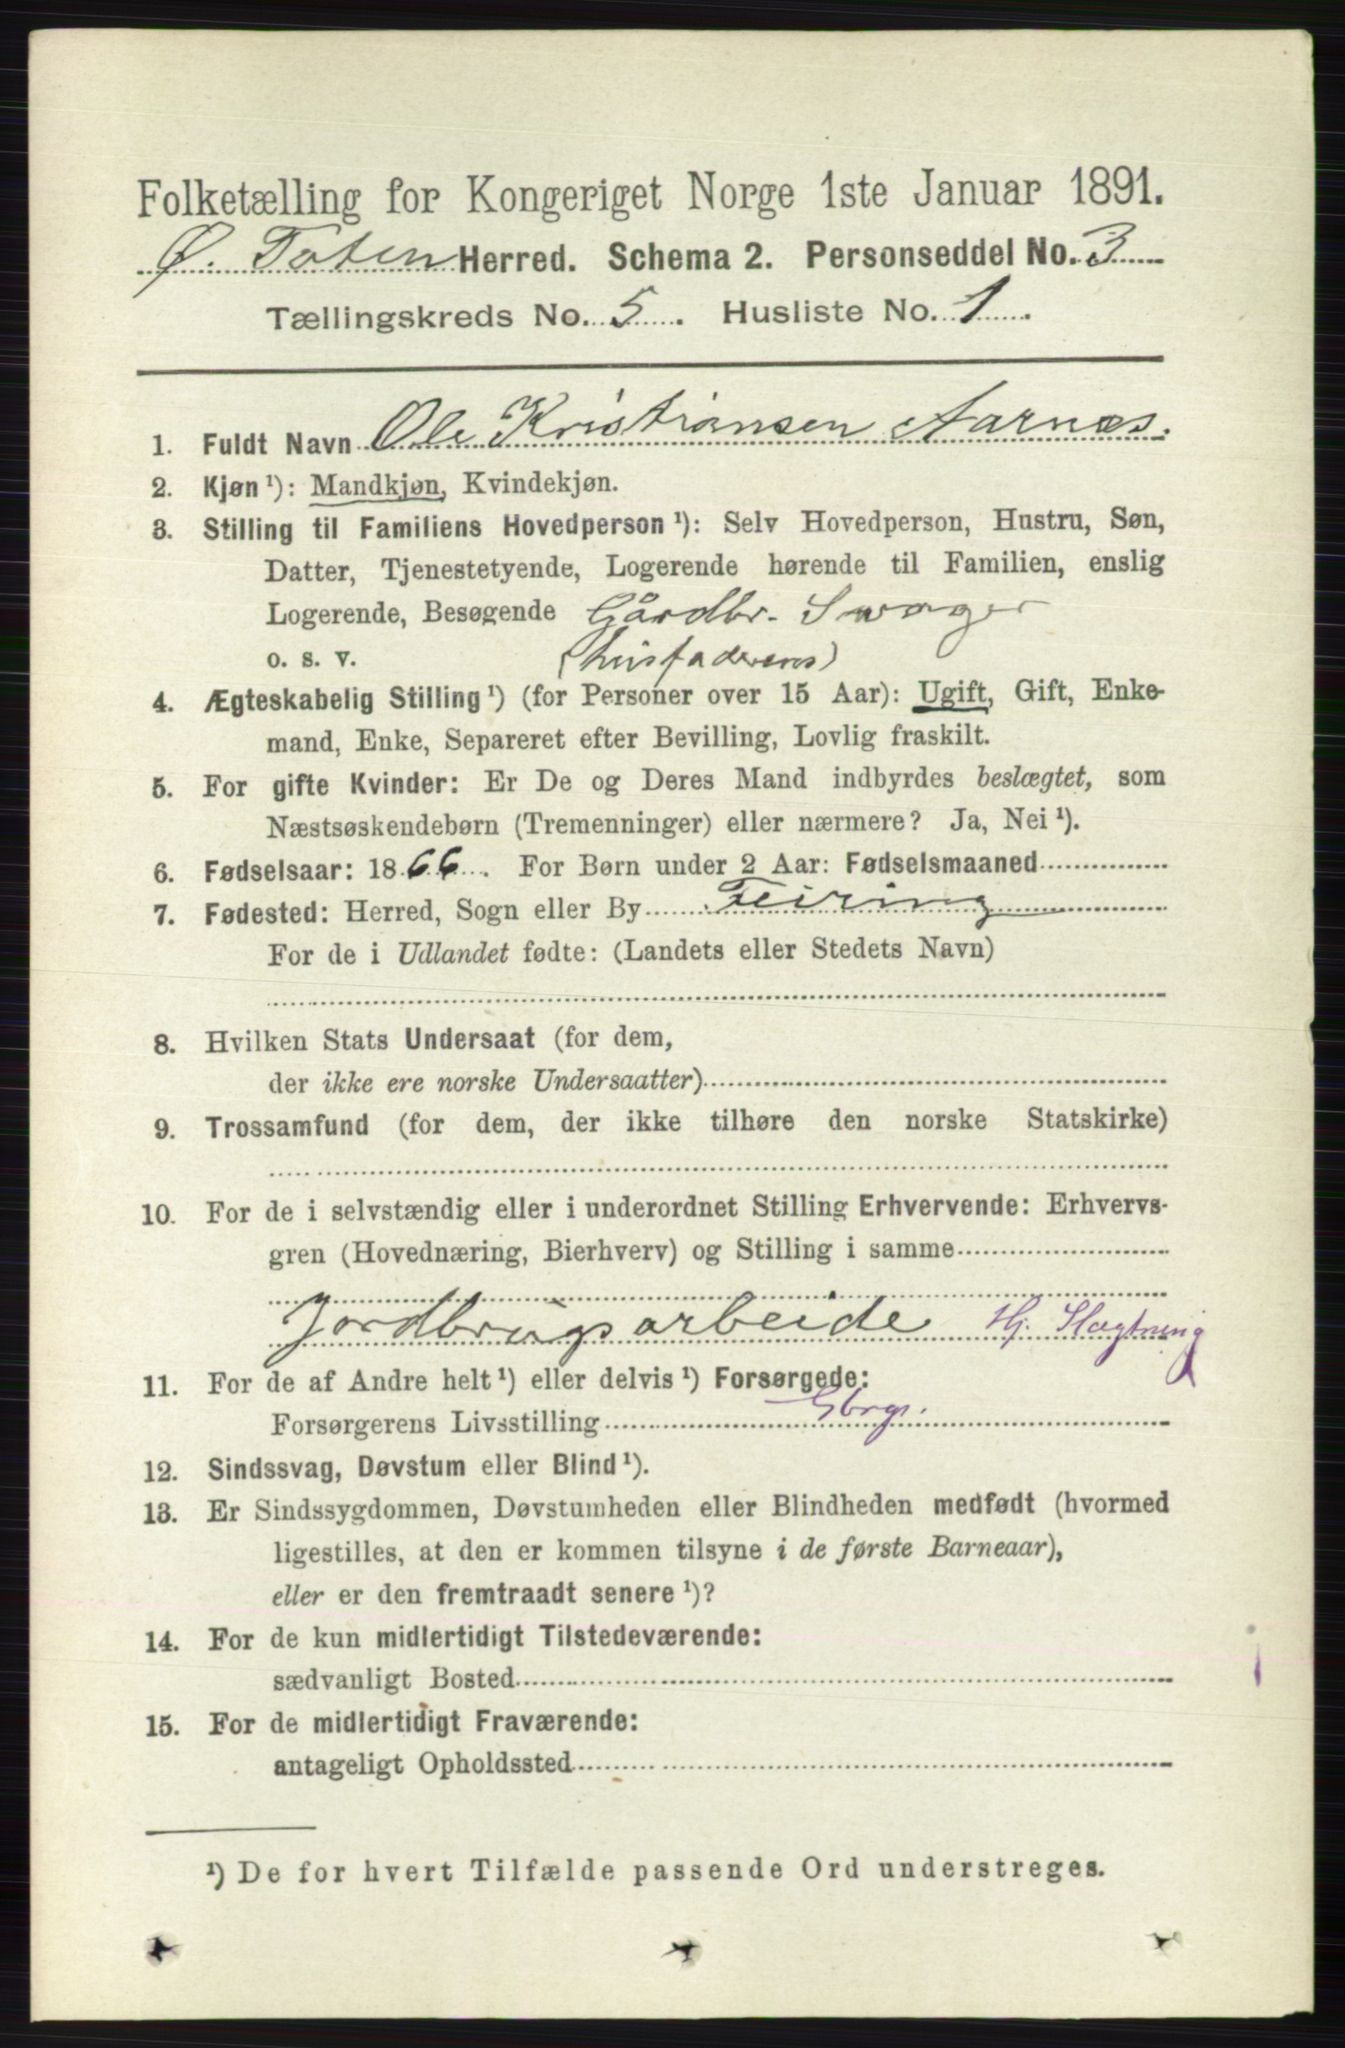 Folketælling for Kongeriget Norge 1ste Januar 1891.
Ø. Toten Herred. Schema 2. Personseddel No. 3
Tællingskreds No. 5. Husliste No. 1.
1. Fuldt Navn Ole Kristiansen Aarnæs.
2. Kjøn ¹): Mandkjøn, Kvindekjøn.
3. Stilling til Familiens Hovedperson ¹): Selv Hovedperson, Hustru, Søn,
Datter, Tjenestetyende, Logerende hørende til Familien, enslig
Logerende, Besøgende Gårdbr. Svoger
o. s. v. (husfaderens)
4. Ægteskabelig Stilling ¹) (for Personer over 15 Aar): Ugift, Gift, Enke-
mand, Enke, Separeret efter Bevilling, Lovlig fraskilt.
5. For gifte Kvinder: Er De og Deres Mand indbyrdes beslægtet, som
Næstsøskendebørn (Tremenninger) eller nærmere? Ja, Nei ¹).
6. Fødselsaar: 1866. For Børn under 2 Aar: Fødselsmaaned
7. Fødested: Herred, Sogn eller By Feiring
For de i Udlandet fødte: (Landets eller Stedets Navn)
8. Hvilken Stats Undersaat (for dem,
der ikke ere norske Undersaatter)
9. Trossamfund (for dem, der ikke tilhøre den norske Statskirke)
10. For de i selvstændig eller i underordnet Stilling Erhvervende: Erhvervs-
gren (Hovednæring, Bierhverv) og Stilling i samme
Jordbrugsarbeide Hj. Slægtning
11. For de af Andre helt ¹) eller delvis ¹) Forsørgede:
Forsørgerens Livsstilling Gbrgr.
12. Sindssvag, Døvstum eller Blind ¹).
13. Er Sindssygdommen, Døvstumheden eller Blindheden medfødt (hvormed
ligestilles, at den er kommen tilsyne i de første Barneaar),
eller er den fremtraadt senere ¹)?
14. For de kun midlertidigt Tilstedeværende:
sædvanligt Bosted
15. For de midlertidigt Fraværende:
antageligt Opholdssted
¹) De for hvert Tilfælde passende Ord understreges.